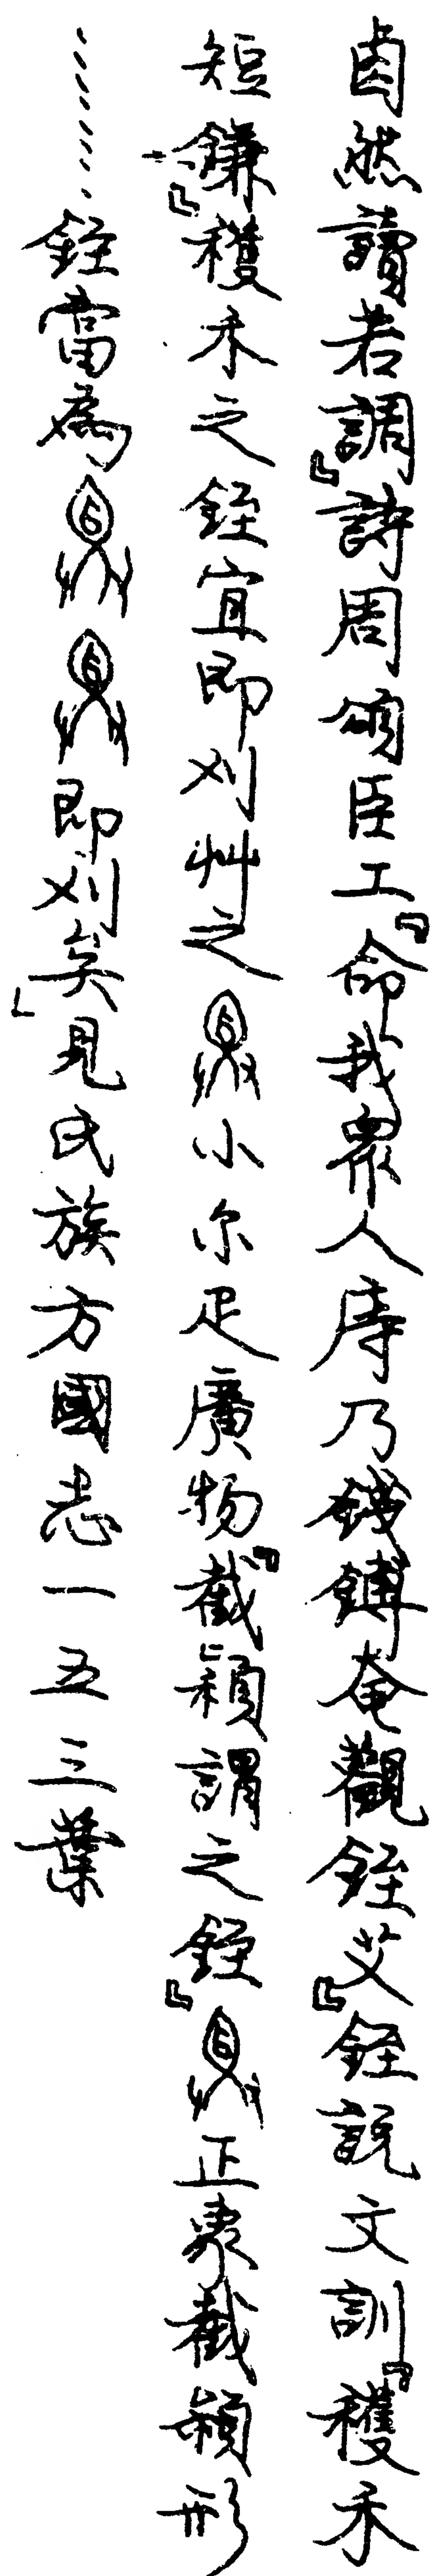 卤然讀若調』詩周頌臣工『命我眾人庤乃錢鎛奄觀銍艾』銍說文訓『穫禾
短鎌』穫禾之銍宜即刈艸之小尔疋廣物『截』穎謂之銍』正象截穎形
……銍當為即刈矣」見氏族方國志一五三葉